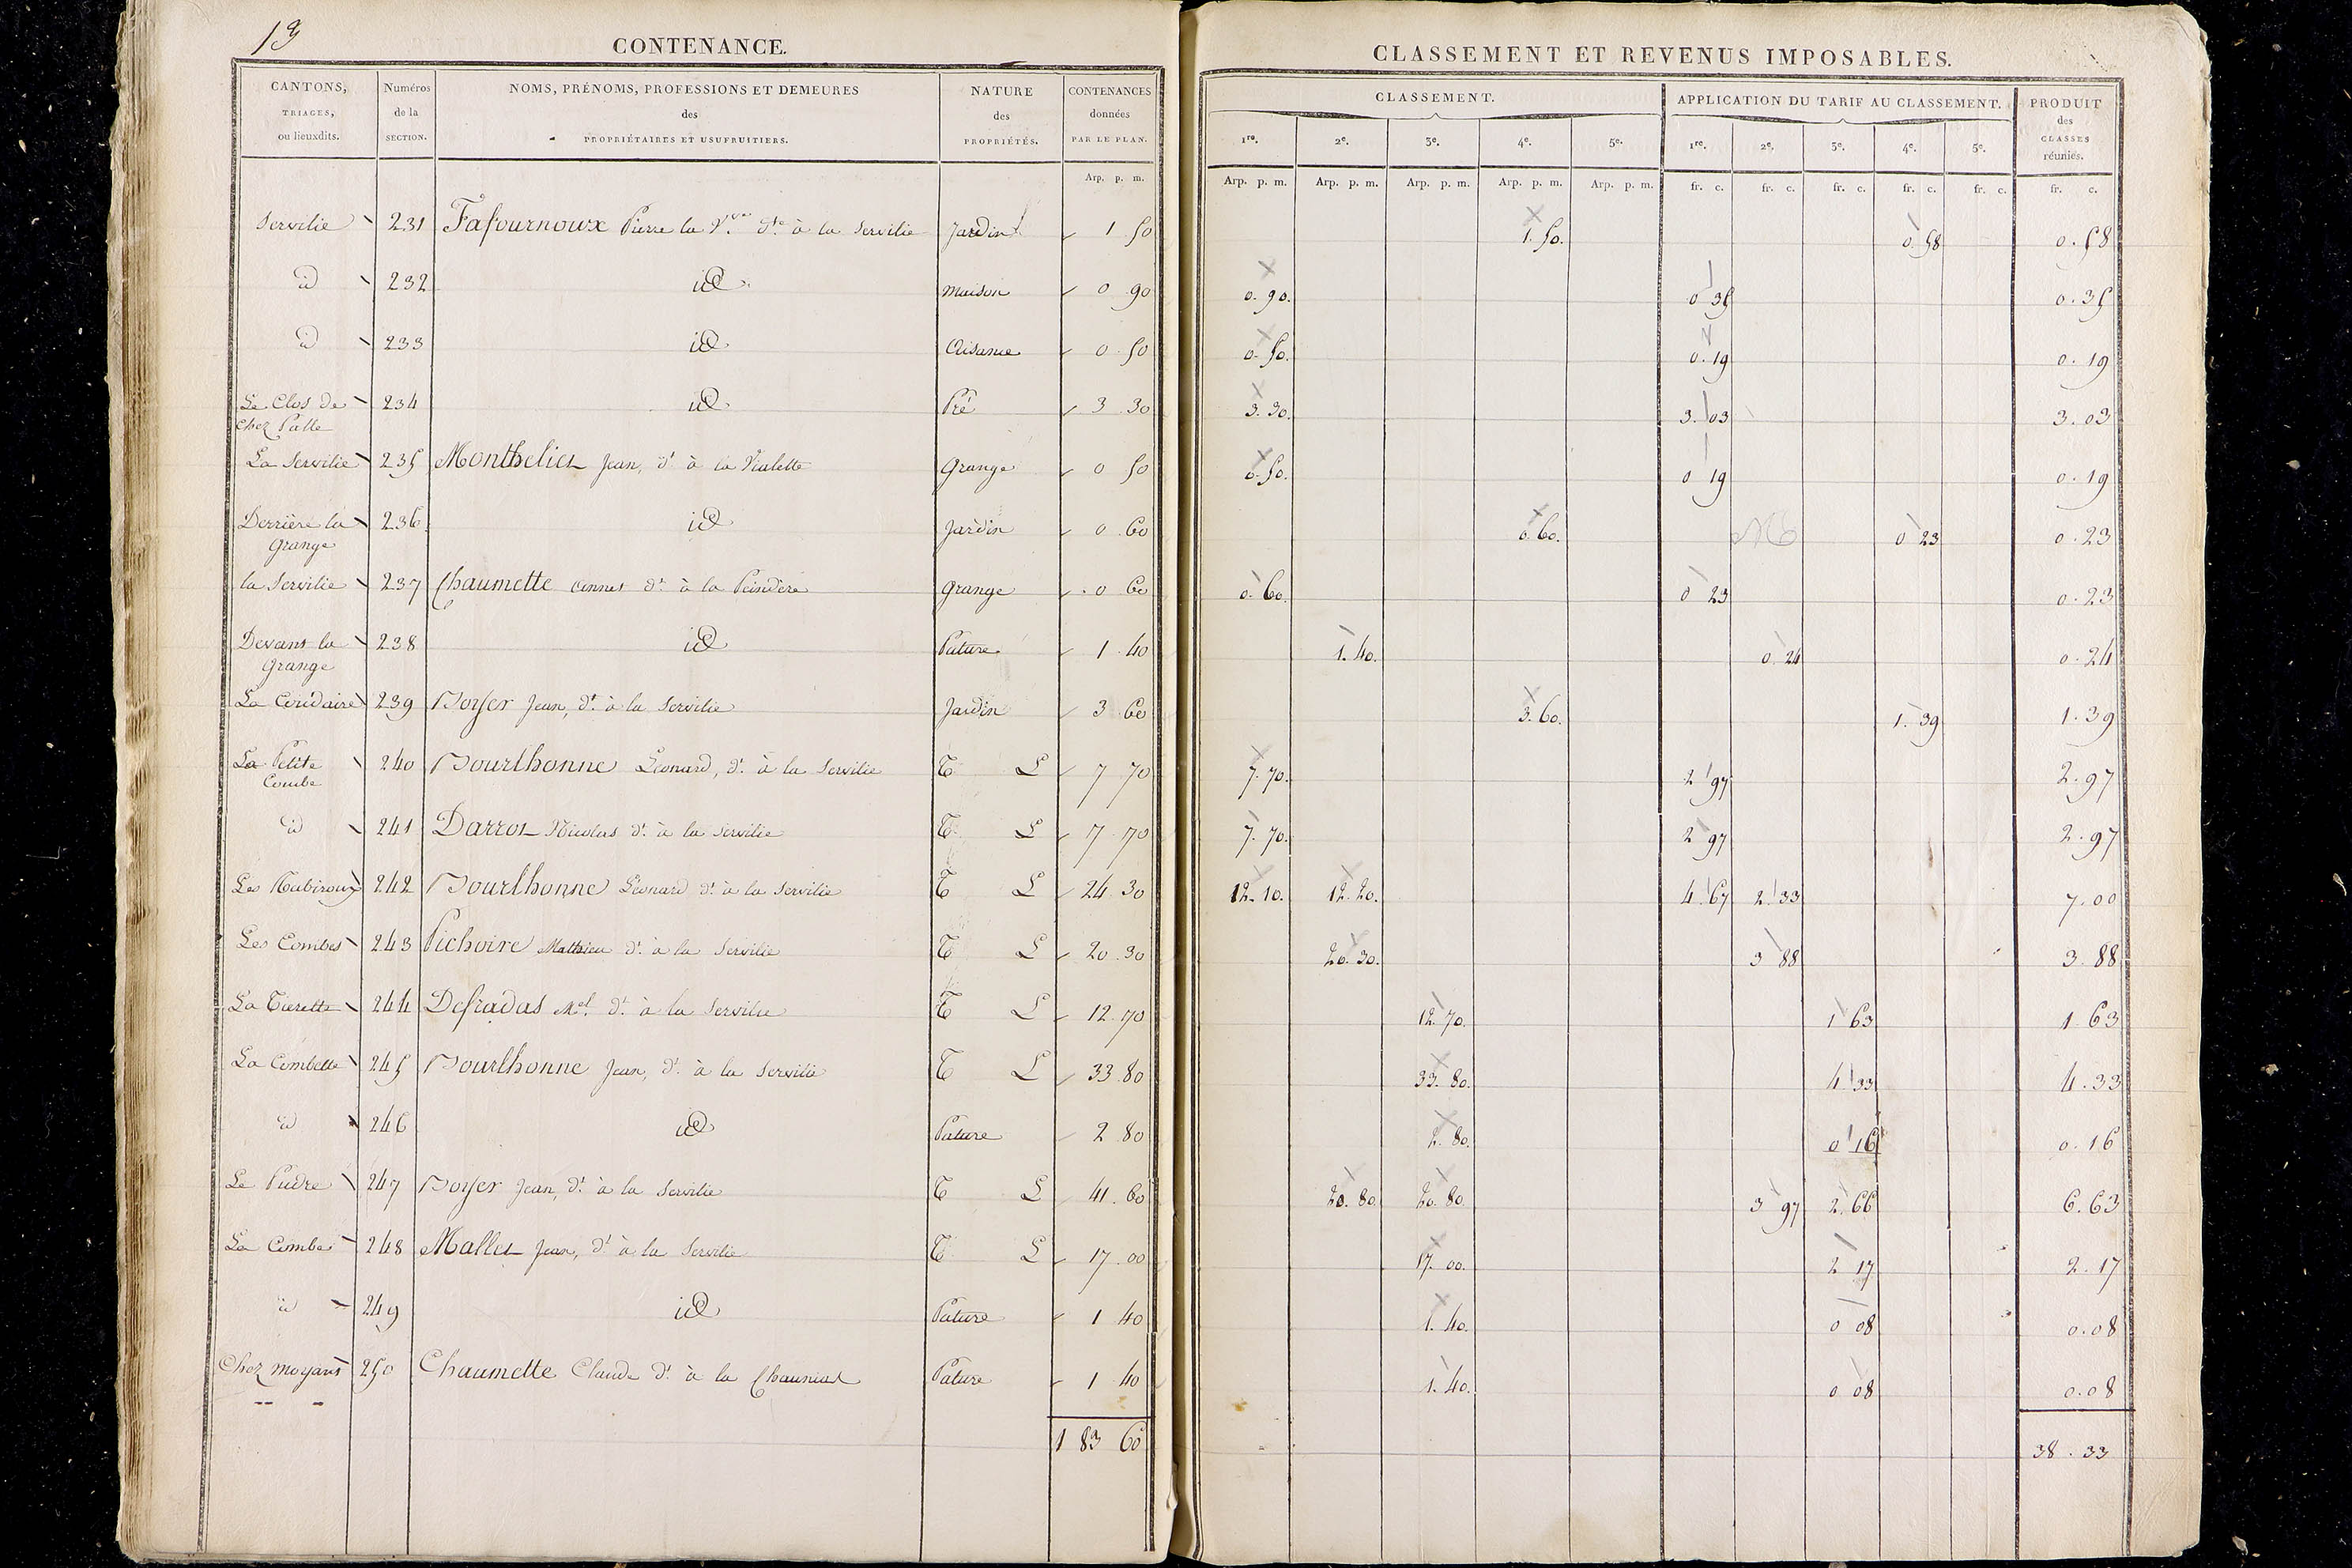 13
CONTENANCE.
CLASSEMENT ET REVENUS IMPOSABLES.
CANTONS, TRIAGES, ou lieuxdits. Numéros de la SECTION. NOMS, PRÉNOMS, PROFESSIONS ET DEMEURES des PROPRIÉTAIRES ET USUFRUITIERS. NATURE des PROPRIÉTÉS. CONTENANCES données PAR LE PLAN. CLASSEMENT. APPLICATION DU TARIF AU CLASSEMENT. PRODUIT des CLASSES réunies.
1re. 2e. 3e. 4e. 5e. 1re. 2e. 3e. 4e. 5e.
Arp. p. m. Arp. p. m. Arp. p. m. Arp. p. m. Arp. p. m. Arp. p. m. fr. c. fr. c. fr. c. fr. c. fr. c. fr. c.
Servilie 231 Fafournoux Pierre la Vve dte à la Servilie Jardin 1 50 1. 50. 0. 58 0. 58
id 232 id maison 0 90 0. 90. 0 35 0. 35
id 233 id Aisance 0 50 0. 50. 0. 19 0. 19
Le Clos de 234 id Pré 3 30 3. 30. 3. 03 3. 03
chez Palle
La Servilie 235 Monthelier Jean, dt à la Vialette Grange 0 50 0. 50. 0 19 0. 19
Derrière la 236 id Jardin 0 60 0. 60. 0 23 0. 23
Grange
la Servilie 237 Chaumette annet dt à la Grange 0 60 0. 60. 0 23 0. 23
Devant la 238 id Pature 1 40 1. 40. 0. 24 0. 24
Grange
239 Boyer Jean, dt à la Servilie Jardin 3 60 3. 60. 1. 39 1. 39
La Petite 240 Bourlhonne Léonard, dt à la Servilie T L 7 70 7. 70. 2 97 2. 97
Combe
id 241 Darrot Nicolas dt à la Servilie T L 7 70 7. 70. 2 97 2. 97
Les 242 Bourlhonne Léonard dt à la Servilie T L 24 30 12. 10. 12. 20. 4. 67 2. 33 7. 00
Les Combes 243 Pichoire Mathieu dt à la Servilie T L 20 30 20. 30. 3 88 3. 88
La 244 Defradas Mel dt à la Servilie T L 12 70 12. 70. 1 63 1. 63
La Combette 245 Bourlhonne Jean, dt à la Servilie T L 33 80 33. 80. 4 33 4. 33
id 246 id Pature 2 80 2. 80. 0 16 0. 16
Le 247 Boyer Jean, dt à la Servilie T L 41 60 20. 80. 20. 80. 3 97 2. 66 6. 63
La Combe 248 Mallet Jean, dt à la Servilie T L 17 00 17. 00. 2 17 2. 17
id 249 id Pature 1 40 1. 40. 0 08 0. 08
Chez moyant 250 Chaumette Claude dt à la Pature 1 40 1. 40. 0 08 0. 08
1 83 60 38. 33